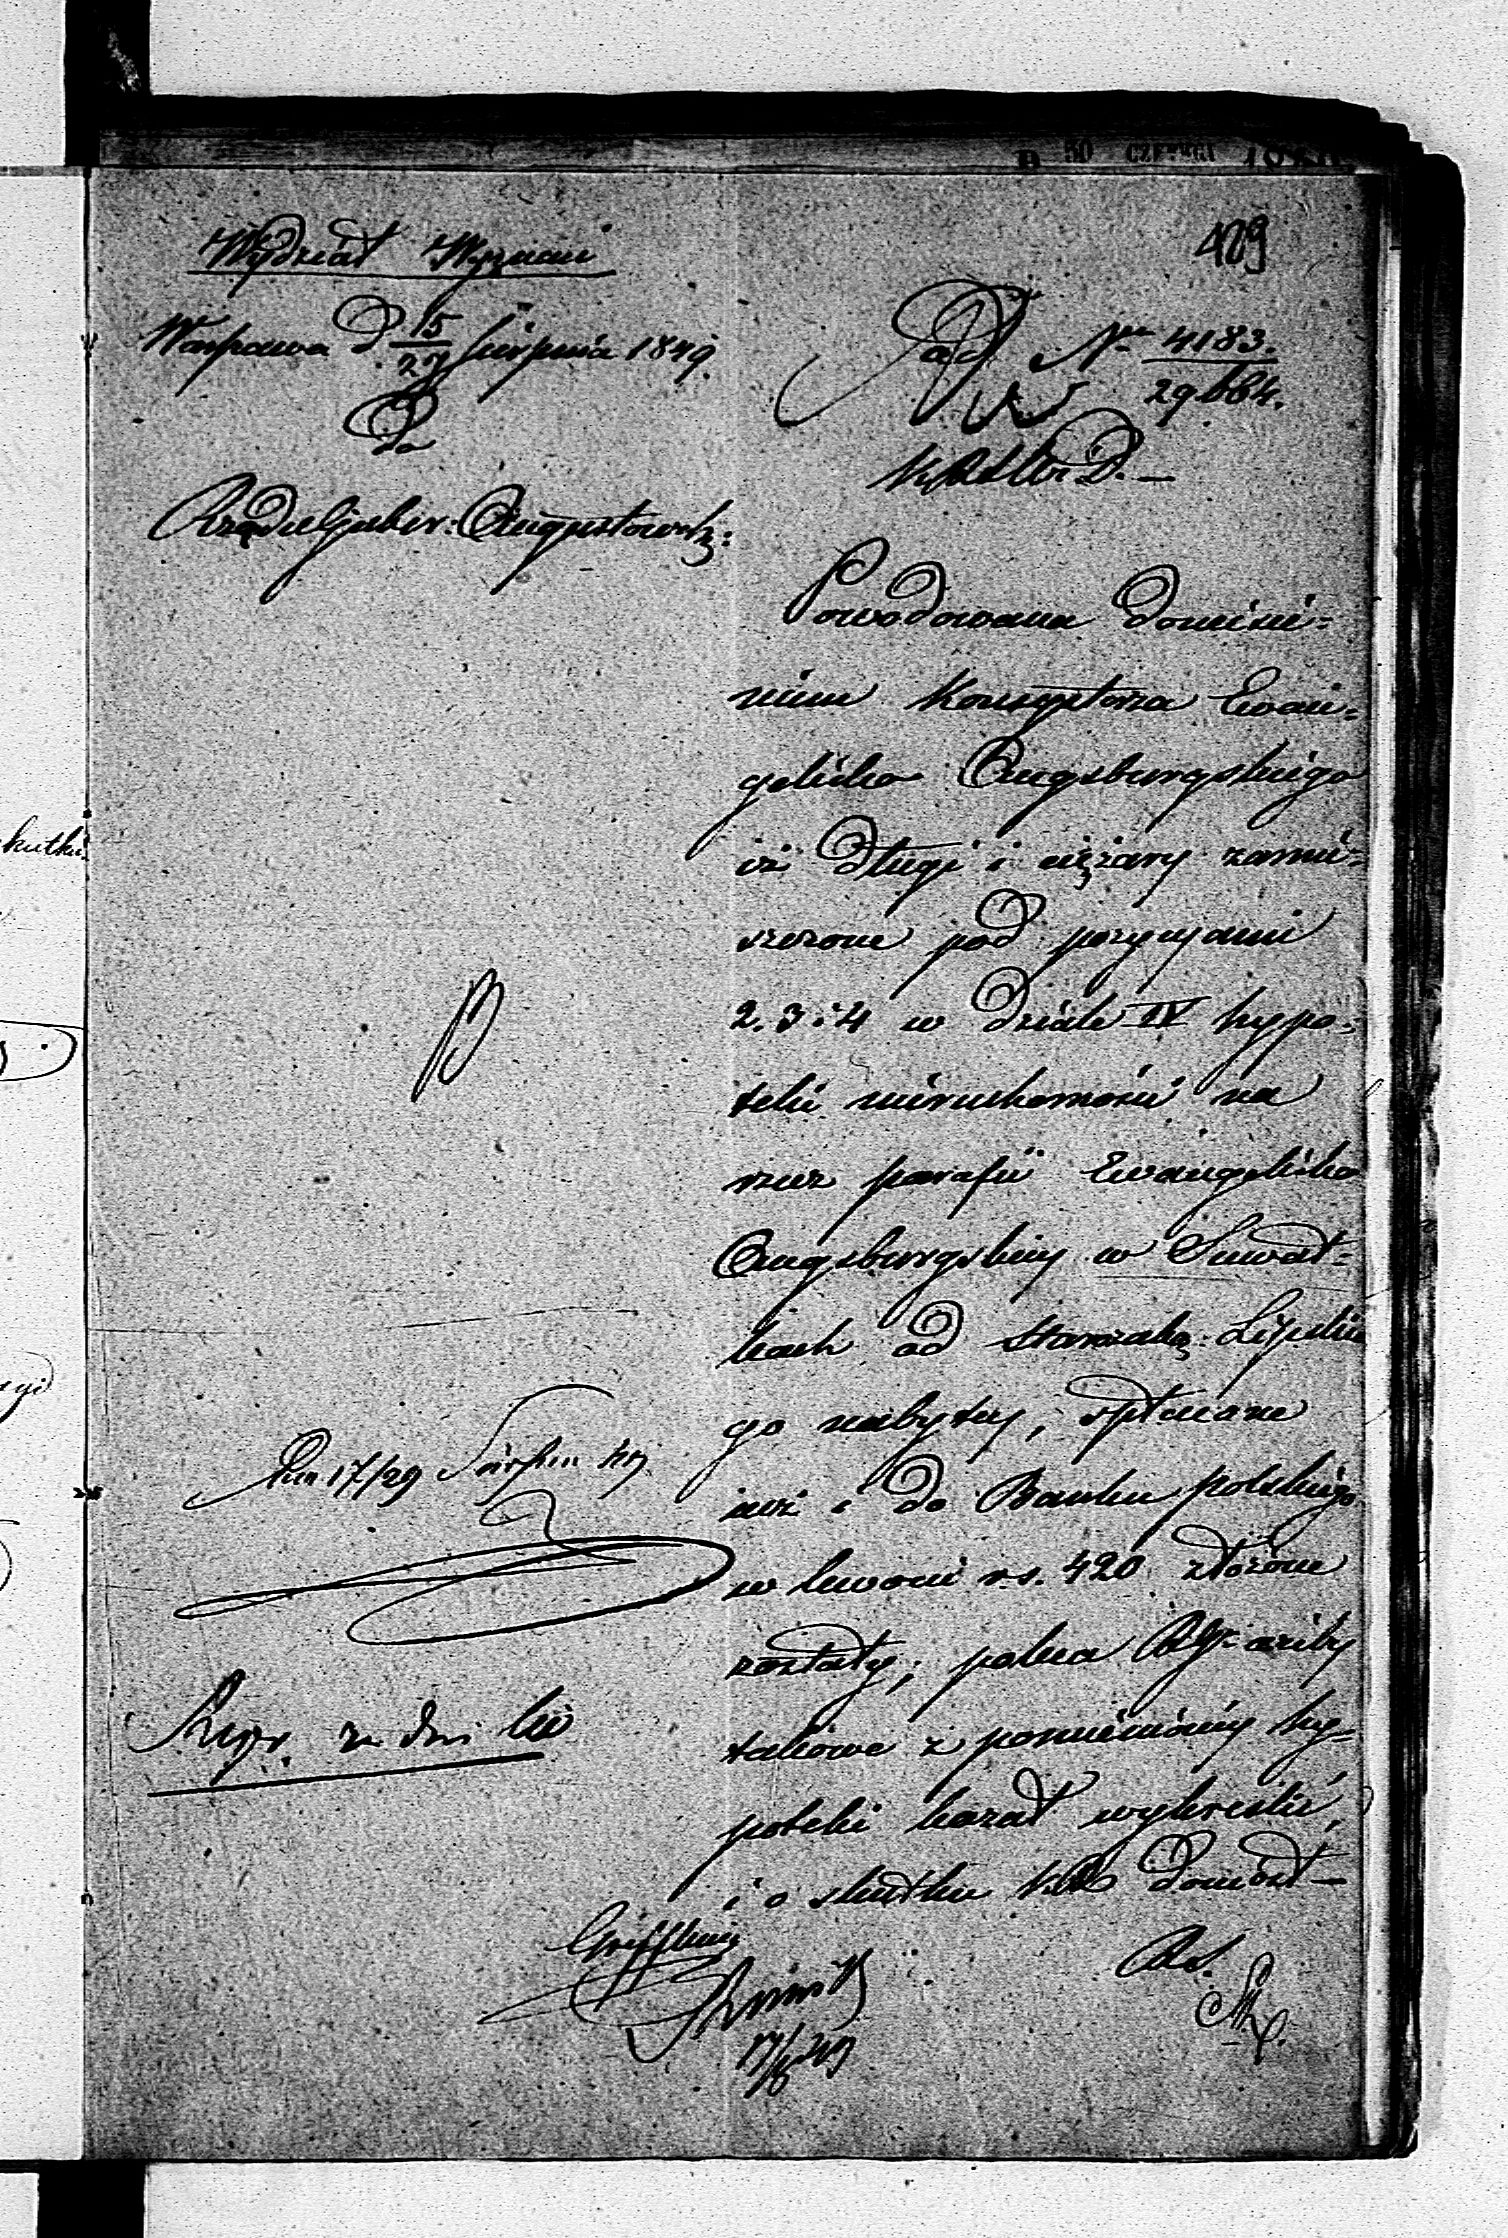 489
Wydział Wyznań
Warszawa D 15/27 Sierpnia 1849.
Do
Rządu Gjuber: Augustowsk:
ad Nr 4183./29664.
KRSWiD.—
Powodowana doniesie=
niem Konsystorza Ewan=
gelicko Augsburgskiego
iż długi i ciężary zamie=
szczone pod pozycyami
2. 3 i 4 w dziale IV hypo=
teki nieruchomości na
rzecz parafii Ewangelicko
Augsburgskiej w Suwał=
kach od Starozak: Lipskie
go nabytej, spłacone
już i do Banku polskiego
w kwocie r.s. 420 złożone
zostały; poleca RG ażeby
takowe z pomienionej hy=
poteki kazał wykreślić,
i o skutku KR doniósł—
17/29 Sierpn
za dni